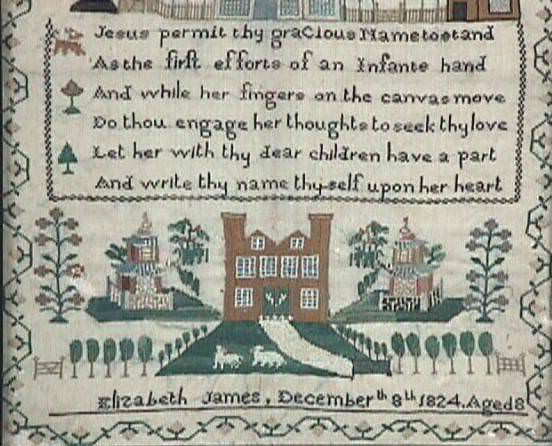 Jesus permit thy gracious Name to stand
As the first efforts of an Infants hand
And while her fingers on the canvas move
Do thou engage her thoughts to seek thy love
Let her with thy dear children have a part
And write thy name thy self upon her heart
Elizabeth James, December th 8th 1824. Aged 8